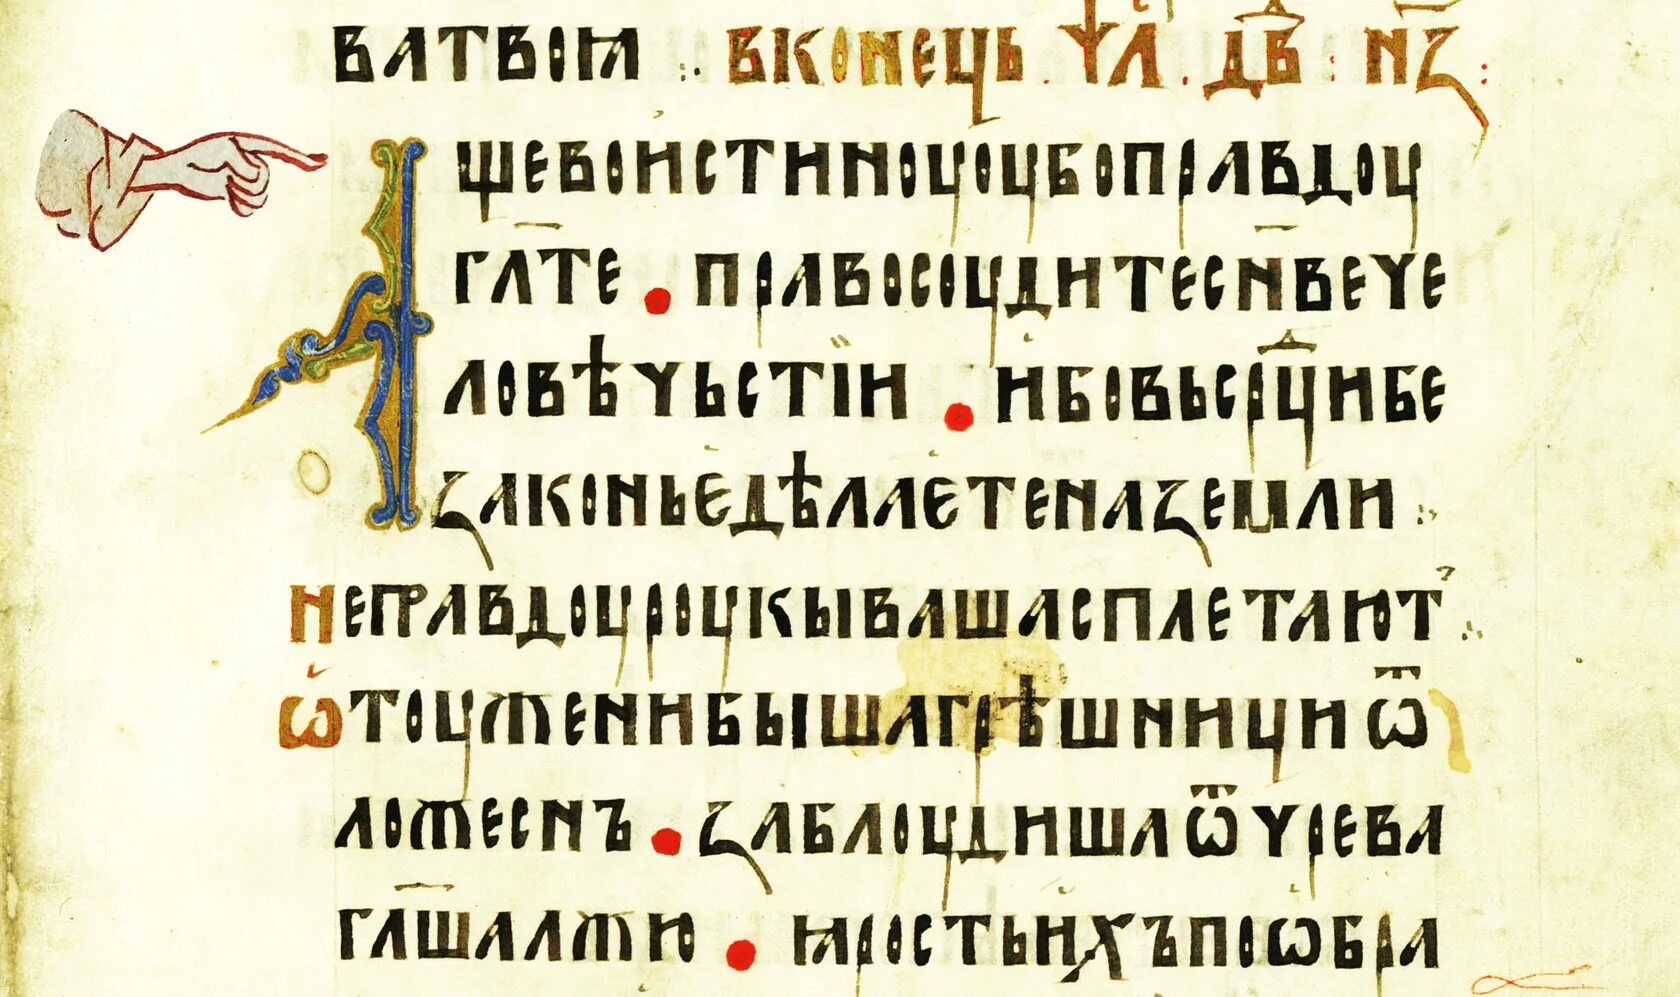 ватвоꙗ ⁘ вконець · ѱⷧ҇а · дв҃ · н҃ꙁ :
Ащевоистиноуоубоправдоу
гл҃те · правосоудитесн҃вече
ловѣчьстїи · ибовьсрⷣцибе
ꙁаконьедѣлаетенаꙁемли ⁘
неправдоуроукывашасплетают ⁘
ѿтоуженибышагрѣшнициѿ
ложеснъ · ꙁаблоудишаѿчрева
гл҃шалжю · ꙗростьихъпоѡбра